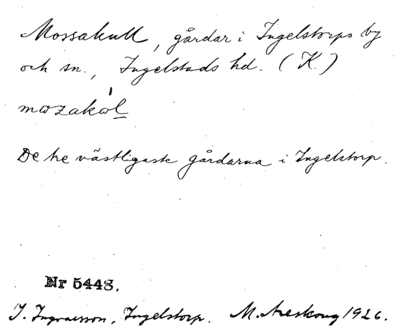 Mossakull, gårdar i Ingelstorps by
och sn., Ingelstads hd. (K.)
mɷzakɷl
De tre västligaste gårdarna i Ingelstorp.
Nr 5443.
I. Ingvarsson, Ingelstorp. M. Areskoug 1926.